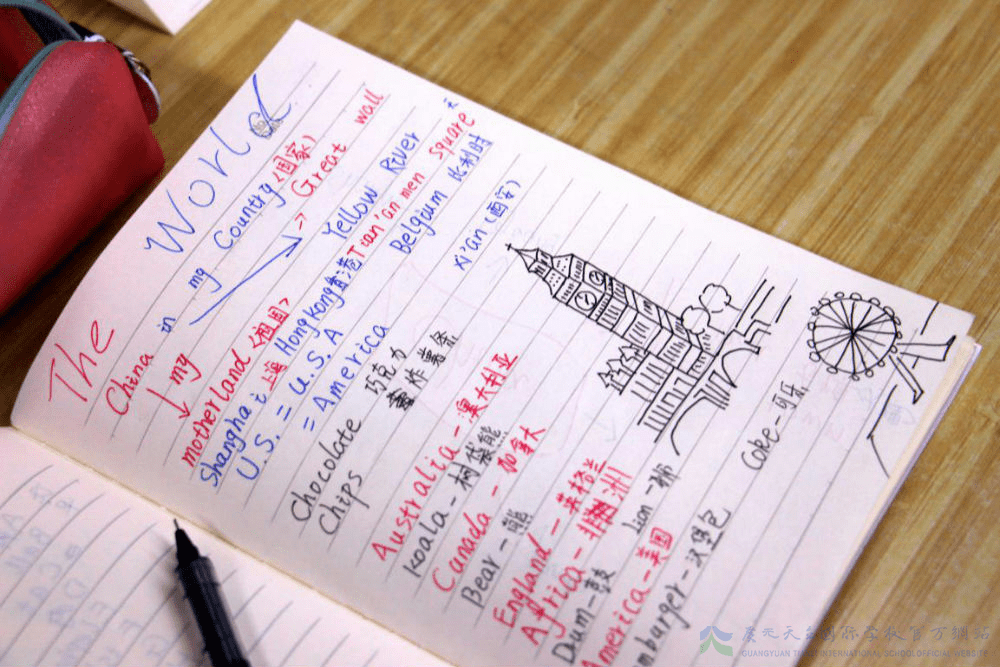 The World
China in my Country (国家)
my → Great wall
motherland (祖国) Yellow River
Shanghai 上海 Hongkong 香港 Tian'an men square 天
U.S. = U.S.A Belgium 比利时
= America Xi'an (西安)
Chocolate 巧克力
Chips 炸薯条
Australia - 澳大利亚
Koala - 树袋熊
Canada - 加拿大
Bear - 熊
England - 英格兰
Africa - 非洲 Lion - 狮 Coke - 可乐
Dum - 鼓
America - 美国
mburger - 汉堡包
广元天立国际学校官方网站
GUANGYUAN INTERNATIONAL SCHOOL OFFICIAL WEBSITE